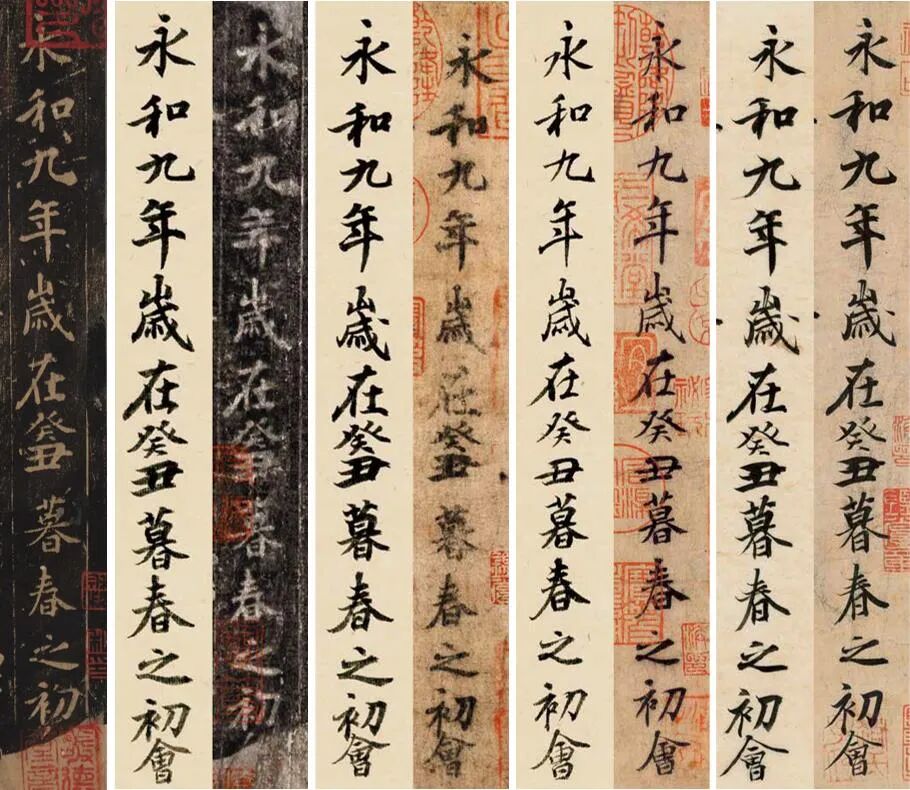 永和九年歲在癸丑暮春之初會
永和九年歲在癸丑暮春之初會
永和九年歲在癸丑暮春之初會
永和九年歲在癸丑暮春之初會
永和九年歲在癸丑暮春之初會
永和九年歲在癸丑暮春之初會
永和九年歲在癸丑暮春之初
永和九年歲在癸丑暮春之初會
永和九年歲在癸丑暮春之初